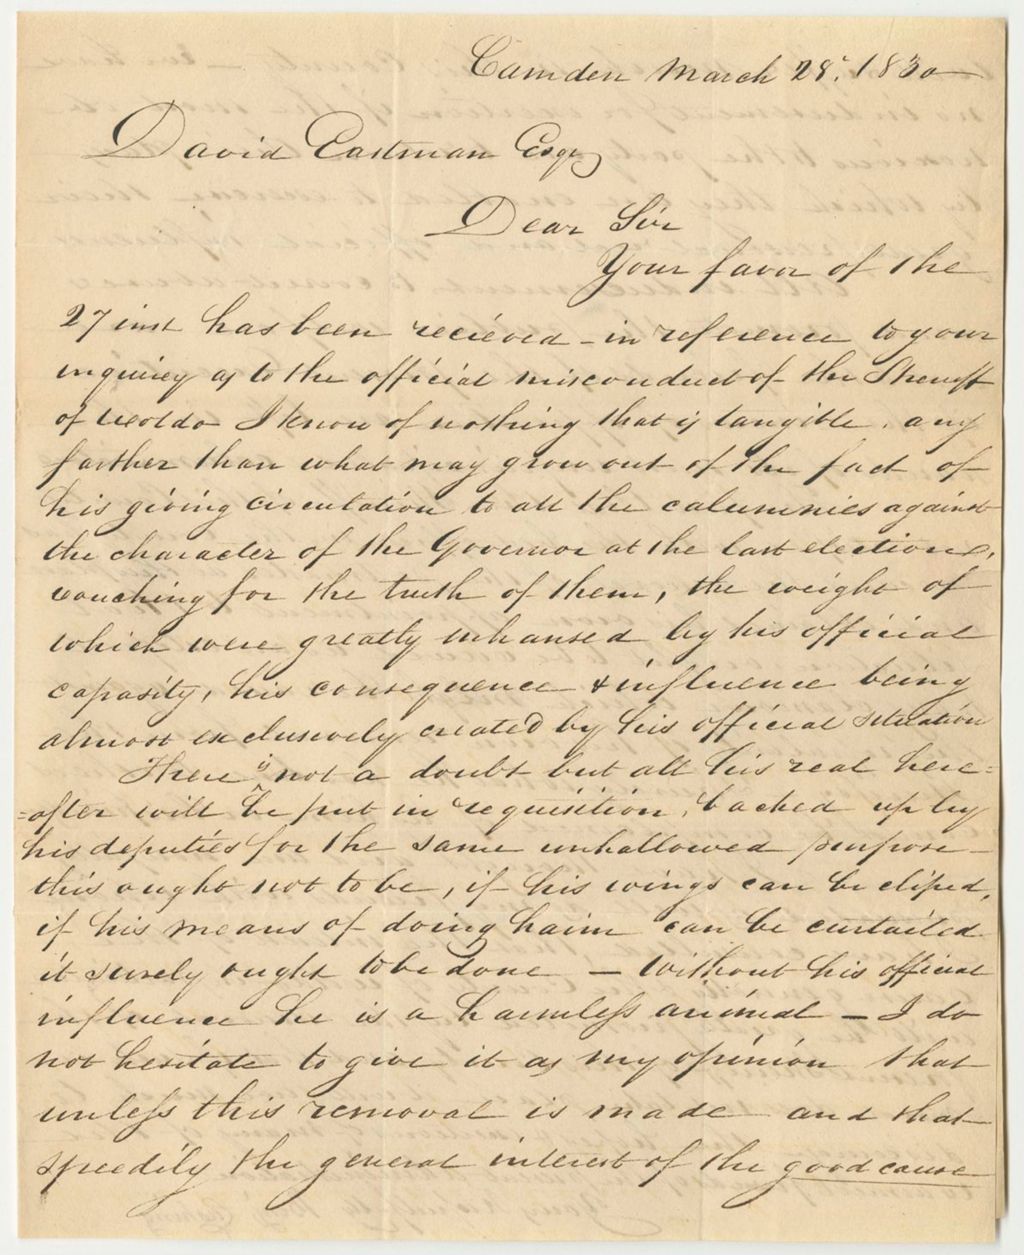 Camden March 28th. 1830
David Eastman Esqr
Dear Sir
Your favor of the
27 inst has been recieved - in reference to your
inquirey as to the official misconduct of the Sheriff
of Waldo I know of nothing that is tangible, any
farther than what may grow out of the fact of
his giving circulation to all the calumnies against
the character of the Governor at the last election,
vouching for the truth of them, the weight of
which were greatly inhansed by his official
capasity, his consequence & influence being
almost exclusively created by his official situation
There is not a doubt but all his zeal here=
=after will be put in requisition, backed up by
his deputies for the same unhallowed purpose -
this ought not to be, if his wings can be cliped,
if his means of doing harm can be curtailed
it surely ought to be done — without his official
influence he is a harmless animal — I do
not hesitate to give it as my opinion that
unless this removal is made and that
speedily the general interest of the good cause